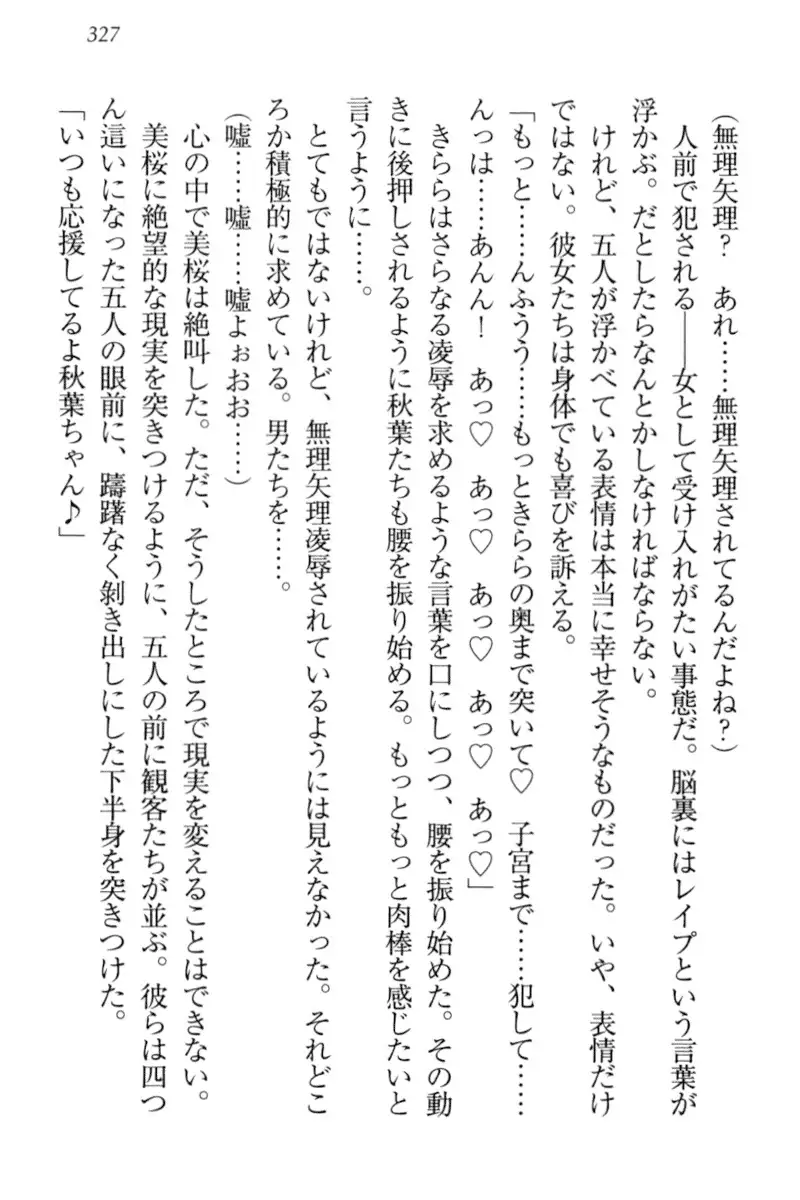 327
(無理矢理?　あれ……無理矢理されてるんだよね?)
人前で犯される――女として受け入れがたい事態だ。脳裏にはレイプという言葉が
浮かぶ。だとしたらなんとかしなければならない。
けれど、五人が浮かべている表情は本当に幸せそうなものだった。いや、表情だけ
ではない。彼女たちは身体でも喜びを訴える。
「もっと……んふうう……もっときららの奥まで突いて♡　子宮まで……犯して……
んっは……あんん!　あっ♡　あっ♡　あっ♡　あっ♡　あっ♡」
きららはさらなる凌辱を求めるような言葉を口にしつつ、腰を振り始めた。その動
きに後押しされるように秋葉たちも腰を振り始める。もっともっと肉棒を感じたいと
言うように……。
とてもではないけれど、無理矢理凌辱されているようには見えなかった。それどこ
ろか積極的に求めている。男たちを……。
(嘘……嘘……嘘よぉおお……)
心の中で美桜は絶叫した。ただ、そうしたところで現実を変えることはできない。
美桜に絶望的な現実を突きつけるように、五人の前に観客たちが並ぶ。彼らは四つ
ん這いになった五人の眼前に、躊躇なく剝き出しにした下半身を突きつけた。
「いつも応援してるよ秋葉ちゃん♪」